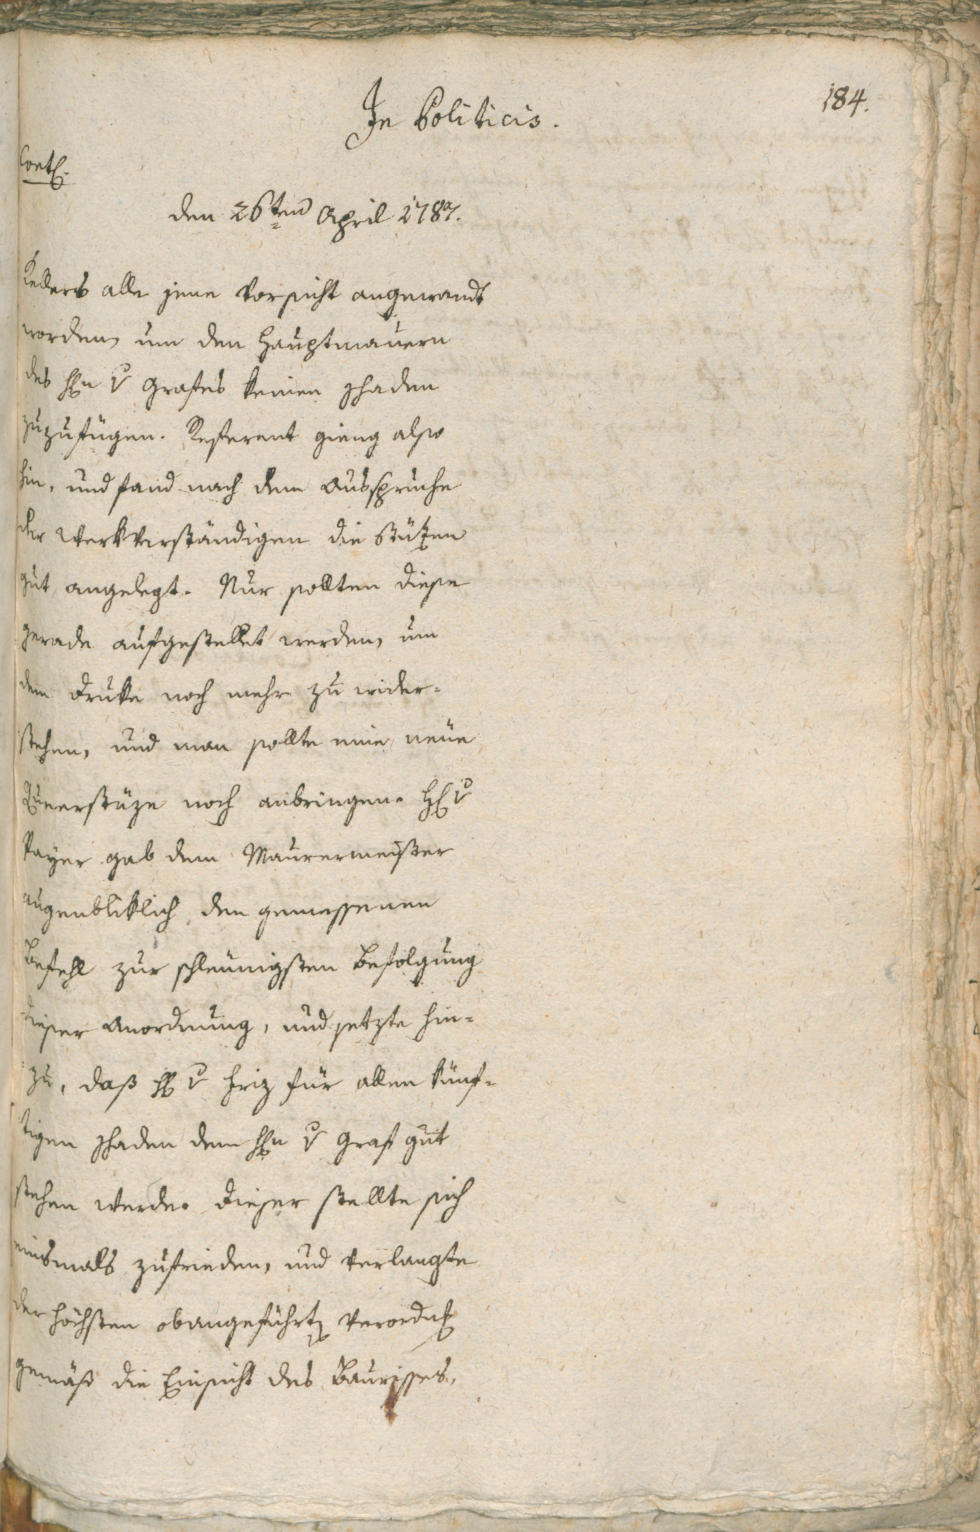 In Politicis.
184.
den 26ten April 1787.
Kellers alle jene Vorsicht angewandt
worden, um den Hauptmauern
des Hn v Grafes keinen Schaden
zuzufügen. Referent gieng also
hin, und fand nach dem Ausspruche
der Werkverständigen die Stützen
gut angelegt. Nur sollten diese
gerade aufgestellet werden, um
dem Druke noch mehr zu wider-
stehen, und man sollte eine neue
noch anbringen. H v
Payer gab dem Maurermeister
augenbliklich den gemessenen
Befehl zur schleunigsten Befolgung
dieser Anordnung, und setzte hin-
zu, daß H v Friz für allen künf-
tigen Schaden dem Hn v Graf gut
stehen werde. Dieser stellte sich
einsmals zufrieden, und verlangte
der höchsten obangeführt Verordn
gemäß die Einsicht des Baurisses,